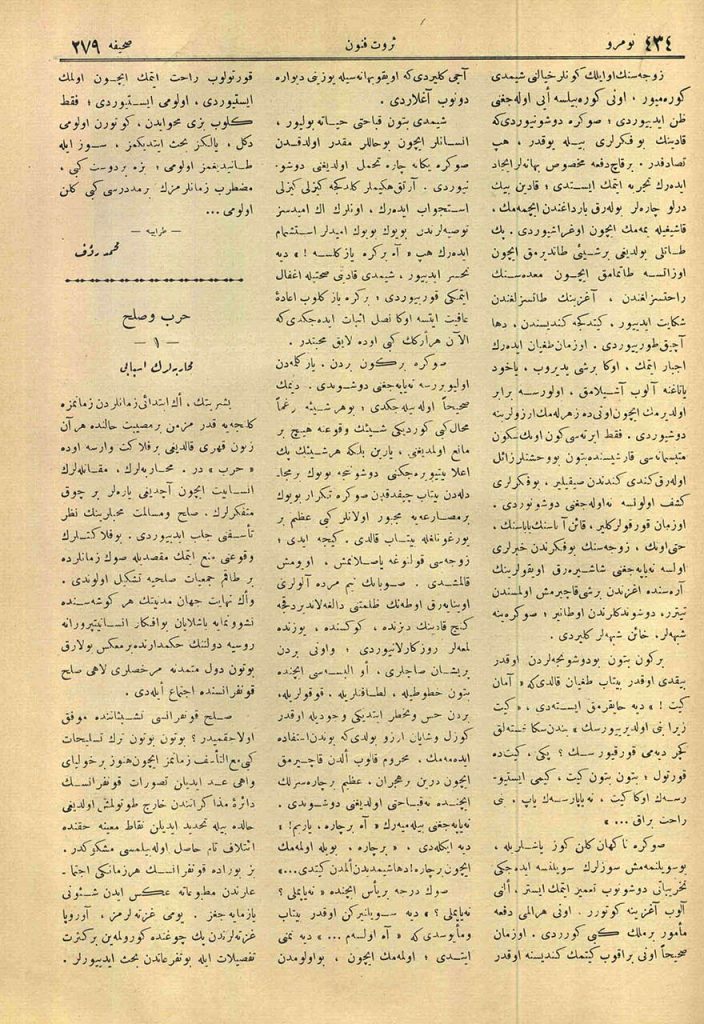 نومرو ٤٣٤
ثروت فنون
صحيفه ٢٧٩
زوجه‌سنك اوايلك كونلر خيالنی شيمدی
كوره‌ميور ، اونی كوره‌بيلسه أيی اوله‌جغنی
ظن ايديبوردی ؛ صوكره دوشونيوردی‌كه
قادينك بوفكرلری بيله يوقدر ، هپ
تصادفدر . برقاچ دفعه مخصوص بهانه‌لر ايجاد
ايده‌رك تجربه ايتمك ايسته‌دی ؛ قادين بيك
درلو چاره‌لر بوله‌رق بارداغندن ايچمه‌مك ،
قاشيغيله يمه‌مك ايچون اوغراشيوردی . پك
طاتلی بولديغی برشيئی طاتديرمق ايچون
اوزاتسه طاتمامق ايچون معده‌سنك
راحتسزلغندن ، آغزينك طاتسزلغندن
شكايت ايديبور ، كيتدكجه كنديسندن ، دها
آچيق طوريبوردی . اوزمان طغيان ايده‌رك
اجبار ايتمك ، اوكا برشی يديروب ، ياخود
ياتاغنه آلوب آشيلامق ، اولورسه برابر
اولديرمك ايچون اونی‌ده زهرله‌مك ارزولرينه
دوشيوردی . فقط ايرته‌سی كون اونك سكون
متبسمانه‌سی قارشيسنده بتون بووحشتلر زائل
اوله‌رق كندی كندندن صيقيلير ، بوفكرلری
كشف اولونسه نه‌اوله‌جغنی دوشونوردی .
اوزمان قورقولر كلير ، قائن آناسنك باباسنك ،
حتی اونك ، زوجه‌سنك بوفكرندن خبرلری
اولسه نه‌ياپه‌جغنی شاشيره‌رق اويقولرينك
آره‌سنده اغزندن برشی قاچيرمش اولمسندن
تيترر ، دوشوندكلرندن اوطانير ؛ صوكره ينه
شبهه‌لر . خائن شبهه‌لر كليردی .
بركون بتون بودوشونجه‌لردن اوقدر
بيقدی اوقدر بيتاب طغيان قالدی‌كه « آمان
كيت ! » ديه حايقرمق ايسته‌دی ، « كيت
زيرا بنی اولديريبورسك » بندن سكا خسته‌لق
كچر ديه‌می قورقيورسك ؟ پكی ، كيت‌ده
قورتول ؛ بتون بتون كيت ، كيمی ايستيو-
رسه‌ك اوكا كيت ، نه‌ياپارسه‌ك ياپ ، بنی
راحت براق ... »
صوكره ناكهان كلن كوز ياشلريله ،
بوسويلنمه‌مش سوزلرك سويلنسه ايده‌جكی
تخريباتی دوشونوب تعمير ايتمك ايستر ، ألنی
آلوب آغزينه كوتورر . اونی هر المی دفعه
مأمور برملك كبی كوروردی . اوزمان
صحيحاً اونی براقوب كيتمك كنديسنه اوقدر
آجی كليردی‌كه اويقو بهانه‌سيله يوزينی ديواره
دونوب آغلاردی .
شيمدی بتون قباحتی حياته بوليور ،
انسانلر ايچون بوحاللر مقدر اولدقدن
صوكره يكانه چاره تحمل اولديغنی دوشو-
نيوردی . آرتق هكيملر كلدكجه كيزلی كيزلی
استجواب ايده‌رك ، اونلرك اك اميدسز
توصيه‌لرندن بويوك بويوك اميدلر استشمام
ايده‌رك هپ « آه بركره ياز كلسه ! » ديه
تحسر ايديبور ، شيمدی قادنی صحتيله اغفال
ايتمكی قوريبوردی ؛ بركره ياز كلوب اعادهٔ
عافيت ايتسه اوكا نصل اثبات ايده‌جكدی‌كه
الآن هر ارکك كبی اوده لايق محبتدر .
صوكره بركون بردن . ياز كلمه‌دن
اولويررسه نه‌ياپه‌جغنی دوشوندی . ديمك
صحيحاً اوله‌بيله‌جكدی ؛ بوهرشيئه رغماً
محال كبی كورديكی شيئك وقوعنه هيچ بر
مانع اولمديغنی ، يارين بلكه هرشيئك پك
اعلا بيتيويره‌جكنی دوشونجه بويوك برمجا-
دله‌دن بيتاب چيقدقدن صوكره تكرار بويوك
برمصارعه‌يه مجبور اولانلر كبی عظيم بر
يورغونلغله بيتاب قالدی . كيجه ايدی ؛
زوجه‌سی قولتوغه ياصلانمش ، اويومش
قالمشدی . صوبانك نيم مرده آلولری
اوينايه‌رق اوطه‌نك ظلمتنی دالغه‌لانديردقجه
كنج قادينك ديزنده ، كوكسنده ، يوزنده
لمعه‌لر روزكارلانيوردی ؛ واونی بردن
پريشان صاچلری ، أو البسه‌سی ايچنده
بتون خطوطيله ، لطافتلريله . قوقولريله .
بردن حس وتخطر ايتديكی وجوديله اوقدر
كوزل وشايان آرزو بولدی‌كه بوندن استفاده
ايده‌مه‌مك . محروم قالوب ألدن قاچيرمق
ايچون درين برهجران . عظيم برچاره‌سزلك
ايچنده نه‌قباحتی اولديغنی دوشوندی .
نه‌ياپه‌جغنی بيله‌ميه‌رك « آه برچاره ، ياربم ! »
ديه ايكله‌دی ، « برچاره ، بويله اولمه‌مك
ايچون برچاره ! دها شيمديدن ألمدن كيتدی ... »
صوك درجه برياس ايچنده « نه‌ياپملی ؟
نه‌ياپملی ؟ » ديه سويلنيركن اوقدر بيتاب
ومأيوسدی كه « آه اولسه‌م ... » ديه تمنی
ايتدی ؛ اولمه‌مك ايچون ، بواولومدن
قورتولوب راحت ايتمك ايچون اولمك
ايستيوردی . اولومی ايستيوردی ؛ فقط
كلوب بزی بحوايدن ، كوتورن اولومی
دكل ، يالكز بحث ايتديكمز ، سوز ايله
طانيديغمز اولومی ؛ بزه بردوست كبی ،
مضطرب زمانلرمزك برهمدردسی كبی كلن
اولومی ...
— طرابيه —
محمد رؤف
حرب وصلح
— ١ —
محاربه‌لرك اسبابی
بشريتك ، أك ابتدائی زمانلردن زمانمزه
كلنجه‌يه قدر مزمن برمصيبت حالنده هرآن
زبون قهری قالديغی برفلاكت وارسه اوده
« حرب » در . محاربه‌لرك ، مقاتله‌لرك
انسانيت ايچون آچديغی ياره‌لر بر چوق
متفكرلرك . صلح ومسالمت محبلرينك نظر
تأسفنی جلب ايديبوردی . بوفلاكتلرك
وقوعنی منع ايتمك مقصديله صوك زمانلرده
بر طاقم جمعيات صلحيه تشكيل اولوندی .
وأك نهايت جهان مدنيتك هر كوشه‌سنده
نشوونمايه باشلايان بوافكار انسانيتپرورانه
روسيه دولتنك حكمدارنده برمعكس بولارق
بوتون دول متمدنه مرخصلری لاهی صلح
قونفرانسنده اجتماع أيله‌دی .
صلح قونفرانسی تشبثاتنده موفق
اولاجقميدر ؟ بوتون بوتون ترك تسليحات
كبی مع‌التأسف زمانمز ايچون هنوز برخوليای
واهی عد ايديلن تصورات قونفرانسك
دائرهٔ مذاكراتندن خارج طوتولمش اولديغی
حالده بيله تحديد ايديلن نقاط معينه حقنده
ائتلاف تام حاصل اوله‌بيلمسی مشكوكدر .
بز بوراده قونفرانسك هرزمانكی اجتما-
علرندن مطبوعاته عكس ايدن شئونی
يازمايه جغز . يومی غزته‌لرمز ، آوروپا
غزته‌لرندن پك چوغنده كورولمه‌ين بركثرت
تفصيلات ايله بوتفرعاتدن بحث ايديبورلر .